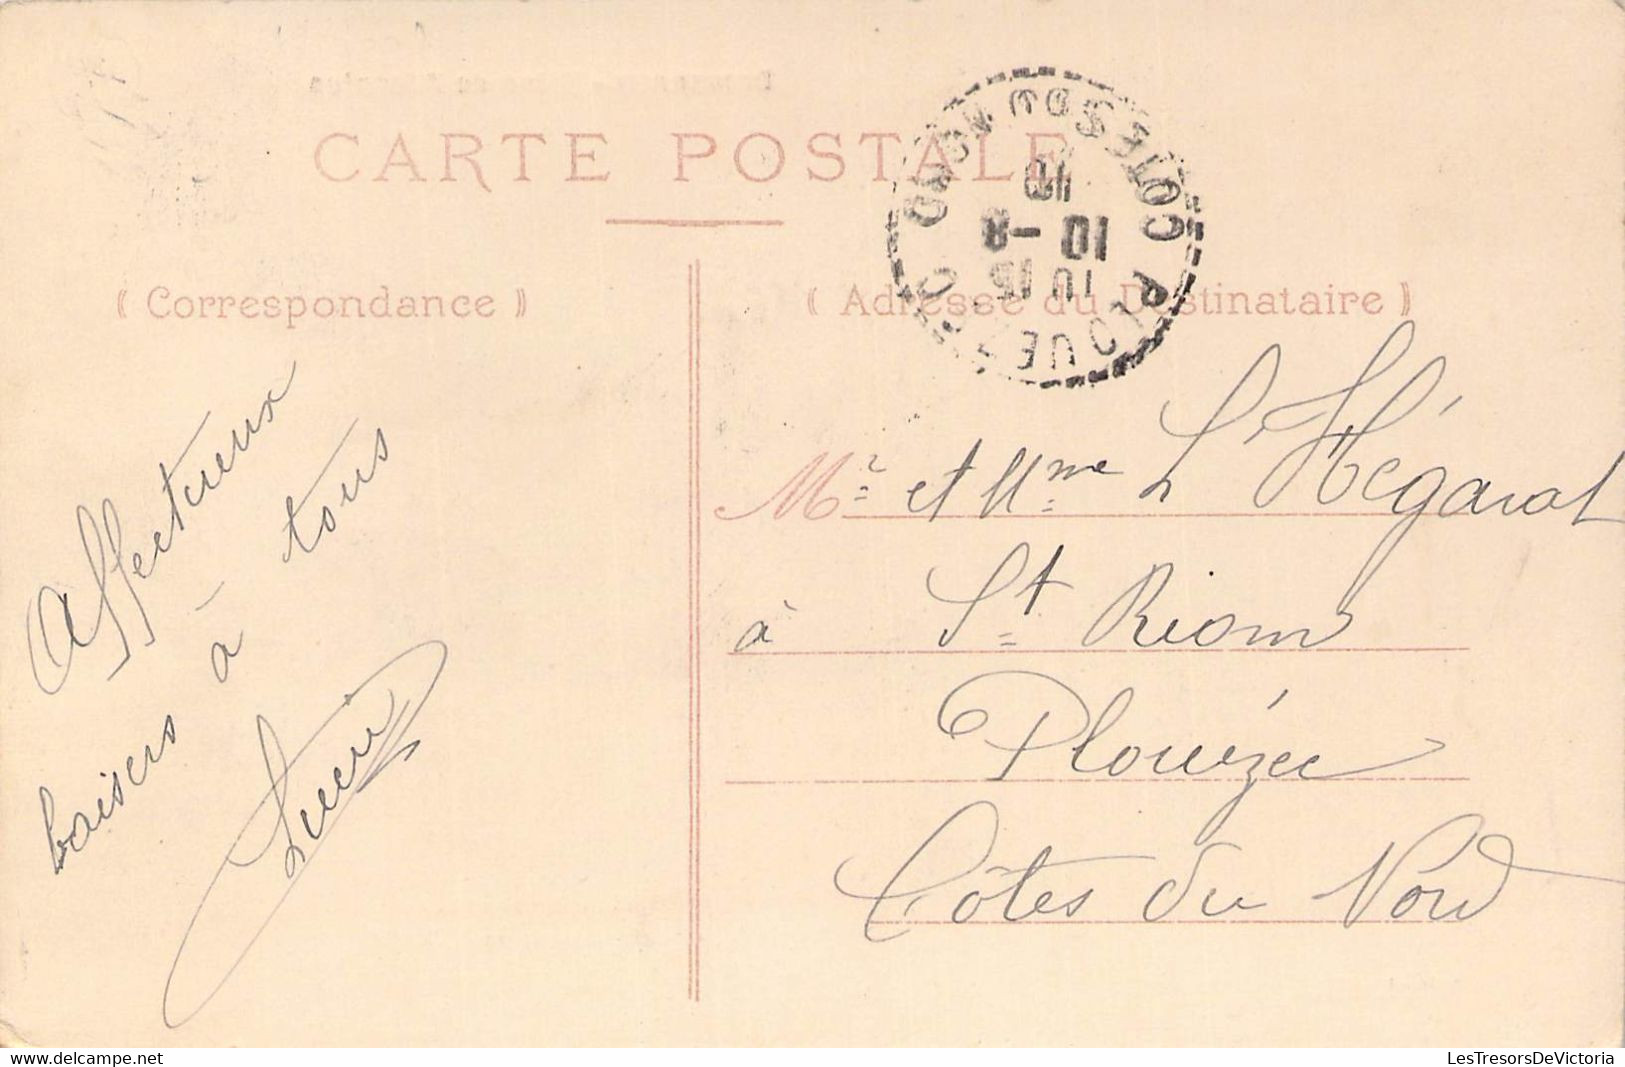 CARTE POSTALE
⸨ Correspondance ⸩
⸨ Adresse du Destinataire ⸩
Affectueux
baisers à tous
COTES DU NORD
10 -8
10
Mr et Mme L'Hégarat
à St Riom
Plouézec
Côtes du Nord
delcampe.net
LesTresorsDeVictoria